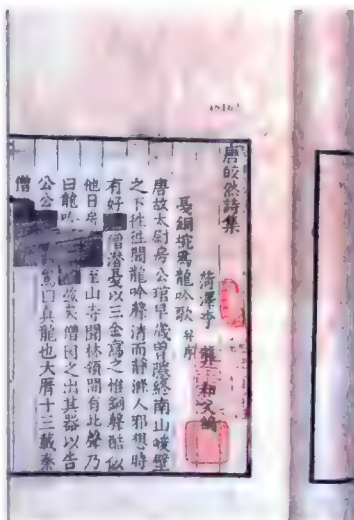 唐皎然詩集
菏澤李龏和父編
戞銅椀為龍吟歌 并序
唐故太尉房公琯早歲曽隱終南山峻壁
之下徃徃聞龍吟聲清而靜滌人邪想時
有好僧潛戞以三金寫之惟銅聲酷似
他日房至山寺聞林嶺間有此聲乃
曰龍吟僧因之出其器以告
公公曰真龍也大厯十三載秦
僧